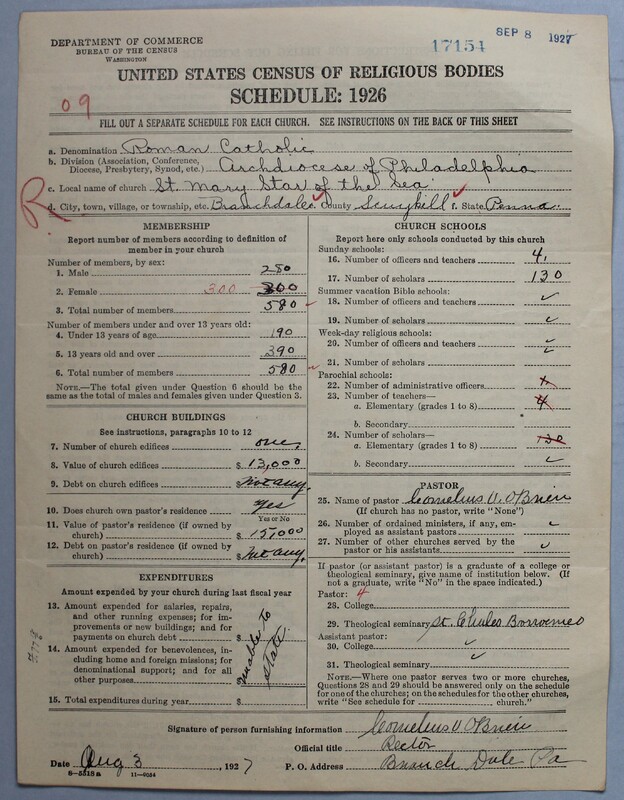 SEP 8 1927
17154
DEPARTMENT OF COMMERCE
BUREAU OF THE CENSUS
WASHINGTON
UNITED STATES CENSUS OF RELIGIOUS BODIES
SCHEDULE: 1926
09
FILL OUT A SEPARATE SCHEDULE FOR EACH CHURCH. SEE INSTRUCTIONS ON THE BACK OF THIS SHEET
a. Denomination Roman Catholic
b. Division (Association, Conference, Diocese, Presbytery, Synod, etc.) Archdiocese of Philadelphia
c. Local name of church St. Mary Star of the Sea
R
d. City, town, village, or township, etc. Branchdale e. County Scuykill f. State Penna.
MEMBERSHIP
Report number of members according to definition of member in your church
Number of members, by sex:
1. Male 280
2. Female 300 300
3. Total number of members 580
Number of members under and over 13 years old:
4. Under 13 years of age 190
5. 13 years old and over 390
6. Total number of members 580
NOTE.—The total given under Question 6 should be the same as the total of males and females given under Question 3.
CHURCH BUILDINGS
See instructions, paragraphs 10 to 12
7. Number of church edifices one
8. Value of church edifices $ 13,000
9. Debt on church edifices $ Not any.
10. Does church own pastor's residence? Yes
Yes or No
11. Value of pastor's residence (if owned by church) $ 15,000
12. Debt on pastor's residence (if owned by church) $ Not any.
EXPENDITURES
Amount expended by your church during last fiscal year
13. Amount expended for salaries, repairs, and other running expenses; for improvements or new buildings; and for payments on church debt $
14. Amount expended for benevolences, including home and foreign missions; for denominational support; and for all other purposes $
unable to state
15. Total expenditures during year $
CHURCH SCHOOLS
Report here only schools conducted by this church
Sunday schools:
16. Number of officers and teachers 4.
17. Number of scholars 130
Summer vacation Bible schools:
18. Number of officers and teachers
19. Number of scholars
Week-day religious schools:
20. Number of officers and teachers
21. Number of scholars
Parochial schools:
22. Number of administrative officers
23. Number of teachers—
a. Elementary (grades 1 to 8) 4
b. Secondary
24. Number of scholars—
a. Elementary (grades 1 to 8) 130
b. Secondary
PASTOR
25. Name of pastor Cornelius V. O'Brien
(If church has no pastor, write "None")
26. Number of ordained ministers, if any, employed as assistant pastors
27. Number of other churches served by the pastor or his assistants
If pastor (or assistant pastor) is a graduate of a college or theological seminary, give name of institution below. (If not a graduate, write "No" in the space indicated.)
Pastor: 4
28. College
29. Theological seminary St. Charles Borromeo
Assistant pastor:
30. College
31. Theological seminary
NOTE.—Where one pastor serves two or more churches, Questions 28 and 29 should be answered only on the schedule for one of the churches; on the schedules for the other churches, write "See schedule for church.)
Signature of person furnishing information Cornelius V. O'Brien
Official title Rector
Date Aug 3, 1927 P. O. Address Branch Dale Pa
8—5518a 11—9054